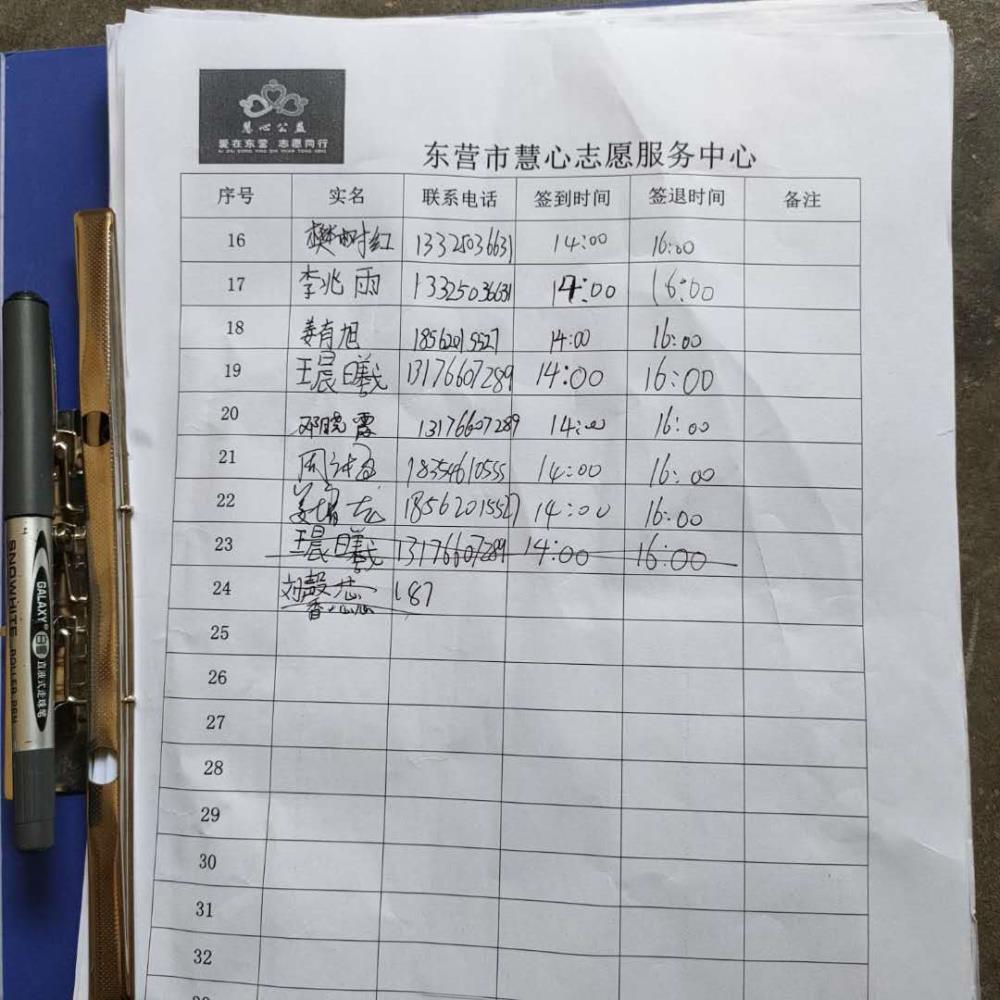 慧心公益
爱在东营 志愿同行
东营市慧心志愿服务中心
序号 实名 联系电话 签到时间 签退时间 备注
16 樊树红 13325036631 14:00 16:00
17 李兆雨 13325036631 14:00 16:00
18 姜育旭 18562015527 14:00 16:00
19 王晨曦 13176607289 14:00 16:00
20 邓晓霞 13176607289 14:00 16:00
21 18354610555 14:00 16:00
22 18562015527 14:00 16:00
23 王晨曦 13176607289 14:00 16:00
24 187
25
26
27
28
29
30
31
32
SNOWHITE ROLLER PEN
GALAXY 直液式走珠笔